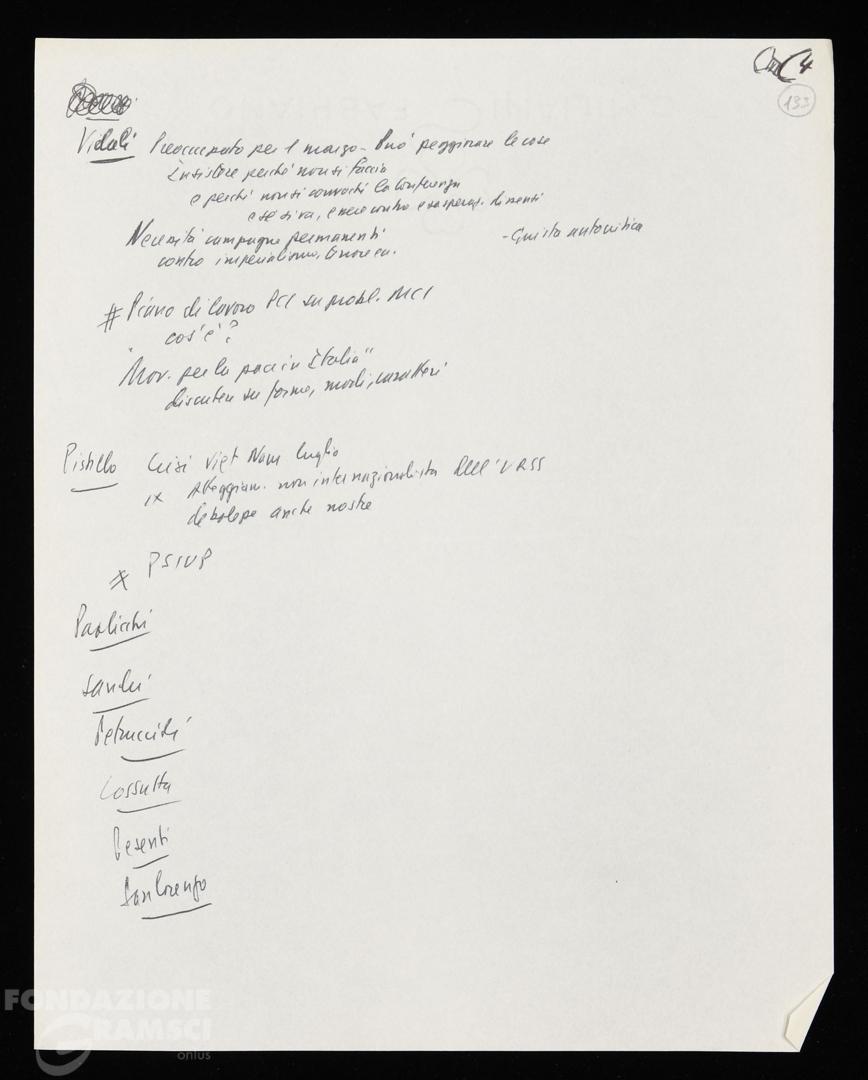 CC 4
133
Vidali Preoccupato per 1 marzo - Può peggiorare le cose
Insistere perché non si faccia
e perché non si convochi la Conferenza
e se si va, e contro dissensi
Necessità campagne permanenti - Giusta autocritica
contro imperialismo,
# Piano di lavoro PCI su probl. MCI
cos'è?
"Mov. per la pace in Italia"
discutere su forme, modi, caratteri
Pistillo Crisi Viet Nam luglio
Atteggiam. non internazionalista dell'URSS
debolezze anche nostre
# PSIUP
Paolicchi
Sandri
Petruccioli
Cossutta
Pesenti
Sanlorenzo
FONDAZIONE
GRAMSCI
onlus